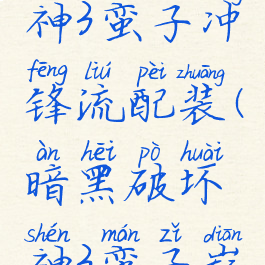 神3蛮子冲
fēng liú pèi zhuāng
锋流配装(
àn hēi pò huài
暗黑破坏
shén mán zǐ diān
神3蛮子